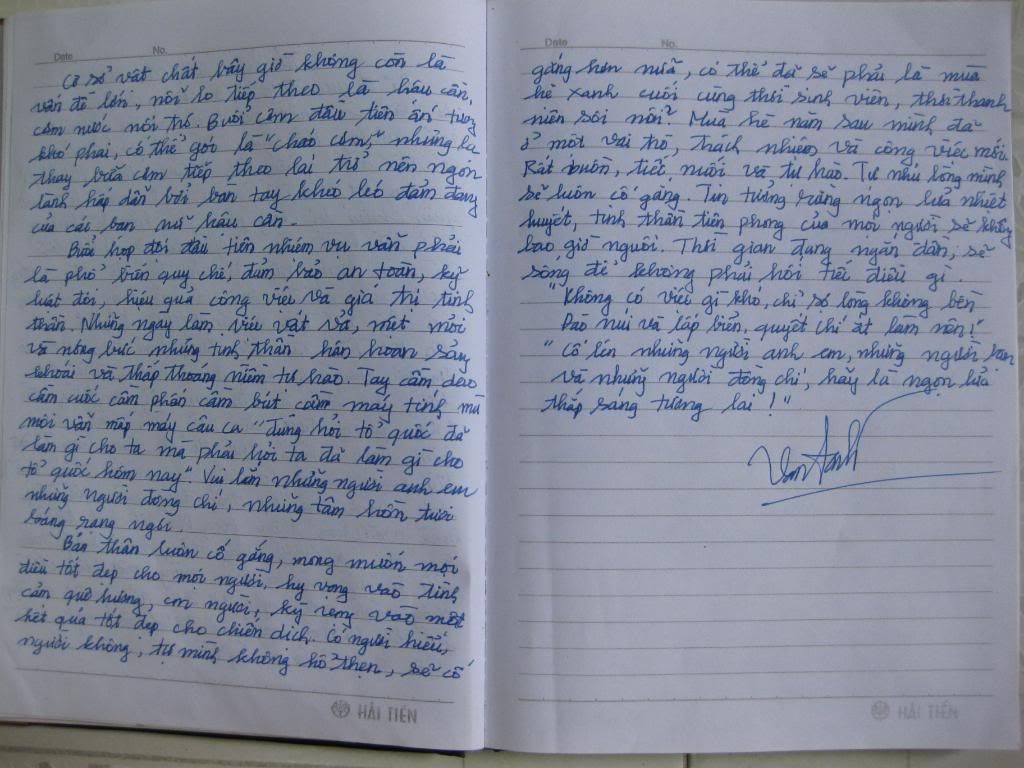 Date No.
Cơ sở vật chất bây giờ không còn là
vấn đề lớn, nỗi lo tiếp theo là hậu cần,
cơm nước nội trú. Buổi cơm đầu tiên ấn tượng
khó phai, có thể gọi là "cháo cơm", nhưng
thay bữa cơm tiếp theo lại trở nên ngon
lành hấp dẫn bởi bàn tay khéo léo đảm đang
của các bạn nữ hậu cần.
Buổi họp đội đầu tiên nhiệm vụ vẫn phải
là phổ biến quy chế, đảm bảo an toàn, kỷ
luật đội, hiệu quả công việc và giá trị tinh
thần. Những ngày làm việc vất vả, mệt mỏi
và nóng bức nhưng tinh thần hân hoan sảng
khoái và thấp thoáng niềm tự hào. Tay cầm dao
cầm cuốc cầm phấn cầm bút cầm máy tính mà
môi vẫn mấp máy câu ca "đừng hỏi tổ quốc đã
làm gì cho ta mà phải hỏi ta đã làm gì cho
tổ quốc hôm nay". Vui lắm những người anh em
những người đồng chí, những tâm hồn tươi
sáng rạng ngời.
Bản thân luôn cố gắng, mong muốn mọi
điều tốt đẹp cho mọi người, hy vọng vào tình
cảm quê hương, con người, kỳ vọng vào một
kết quả tốt đẹp cho chiến dịch. Có người hiểu,
người không, tự mình không hổ thẹn, sẽ cố
HẢI TIẾN
Date No.
gắng hơn nữa, có thể đã sẽ phải là mùa
hè xanh cuối cùng thời sinh viên, thời thanh
niên sôi nổi? Mùa hè năm sau mình đã
ở một vai trò, trách nhiệm và công việc mới.
Rất buồn, tiếc nuối và tự hào. Tự nhủ lòng mình
sẽ luôn cố gắng. Tin tưởng rằng ngọn lửa nhiệt
huyết, tinh thần tiên phong của mọi người sẽ không
bao giờ nguôi. Thời gian đang ngắn dần, sẽ
sống để không phải hối tiếc điều gì.
"Không có việc gì khó, chỉ sợ lòng không bền
Đào núi và lấp biển, quyết chí ắt làm nên!"
"Cố lên những người anh em, những người bạn
và những người đồng chí, hãy là ngọn lửa
thắp sáng tương lai!"
HẢI TIẾN